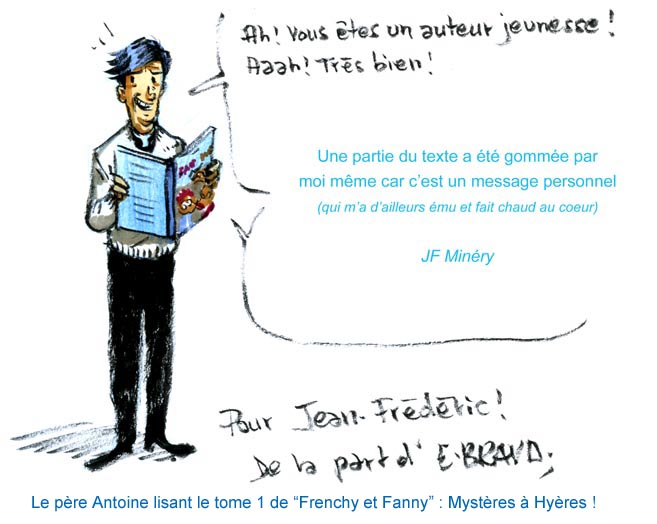 Ah! Vous êtes un auteur jeunesse!
Aaah! Très bien!
Une partie du texte a été gommée par
moi même car c'est un message personnel
(qui m'a d'ailleurs ému et fait chaud au coeur)
JF Minéry
Pour Jean-Frédéric!
De la part d' E.BRAVO;
Le père Antoine lisant le tome 1 de “Frenchy et Fanny” : Mystères à Hyères !